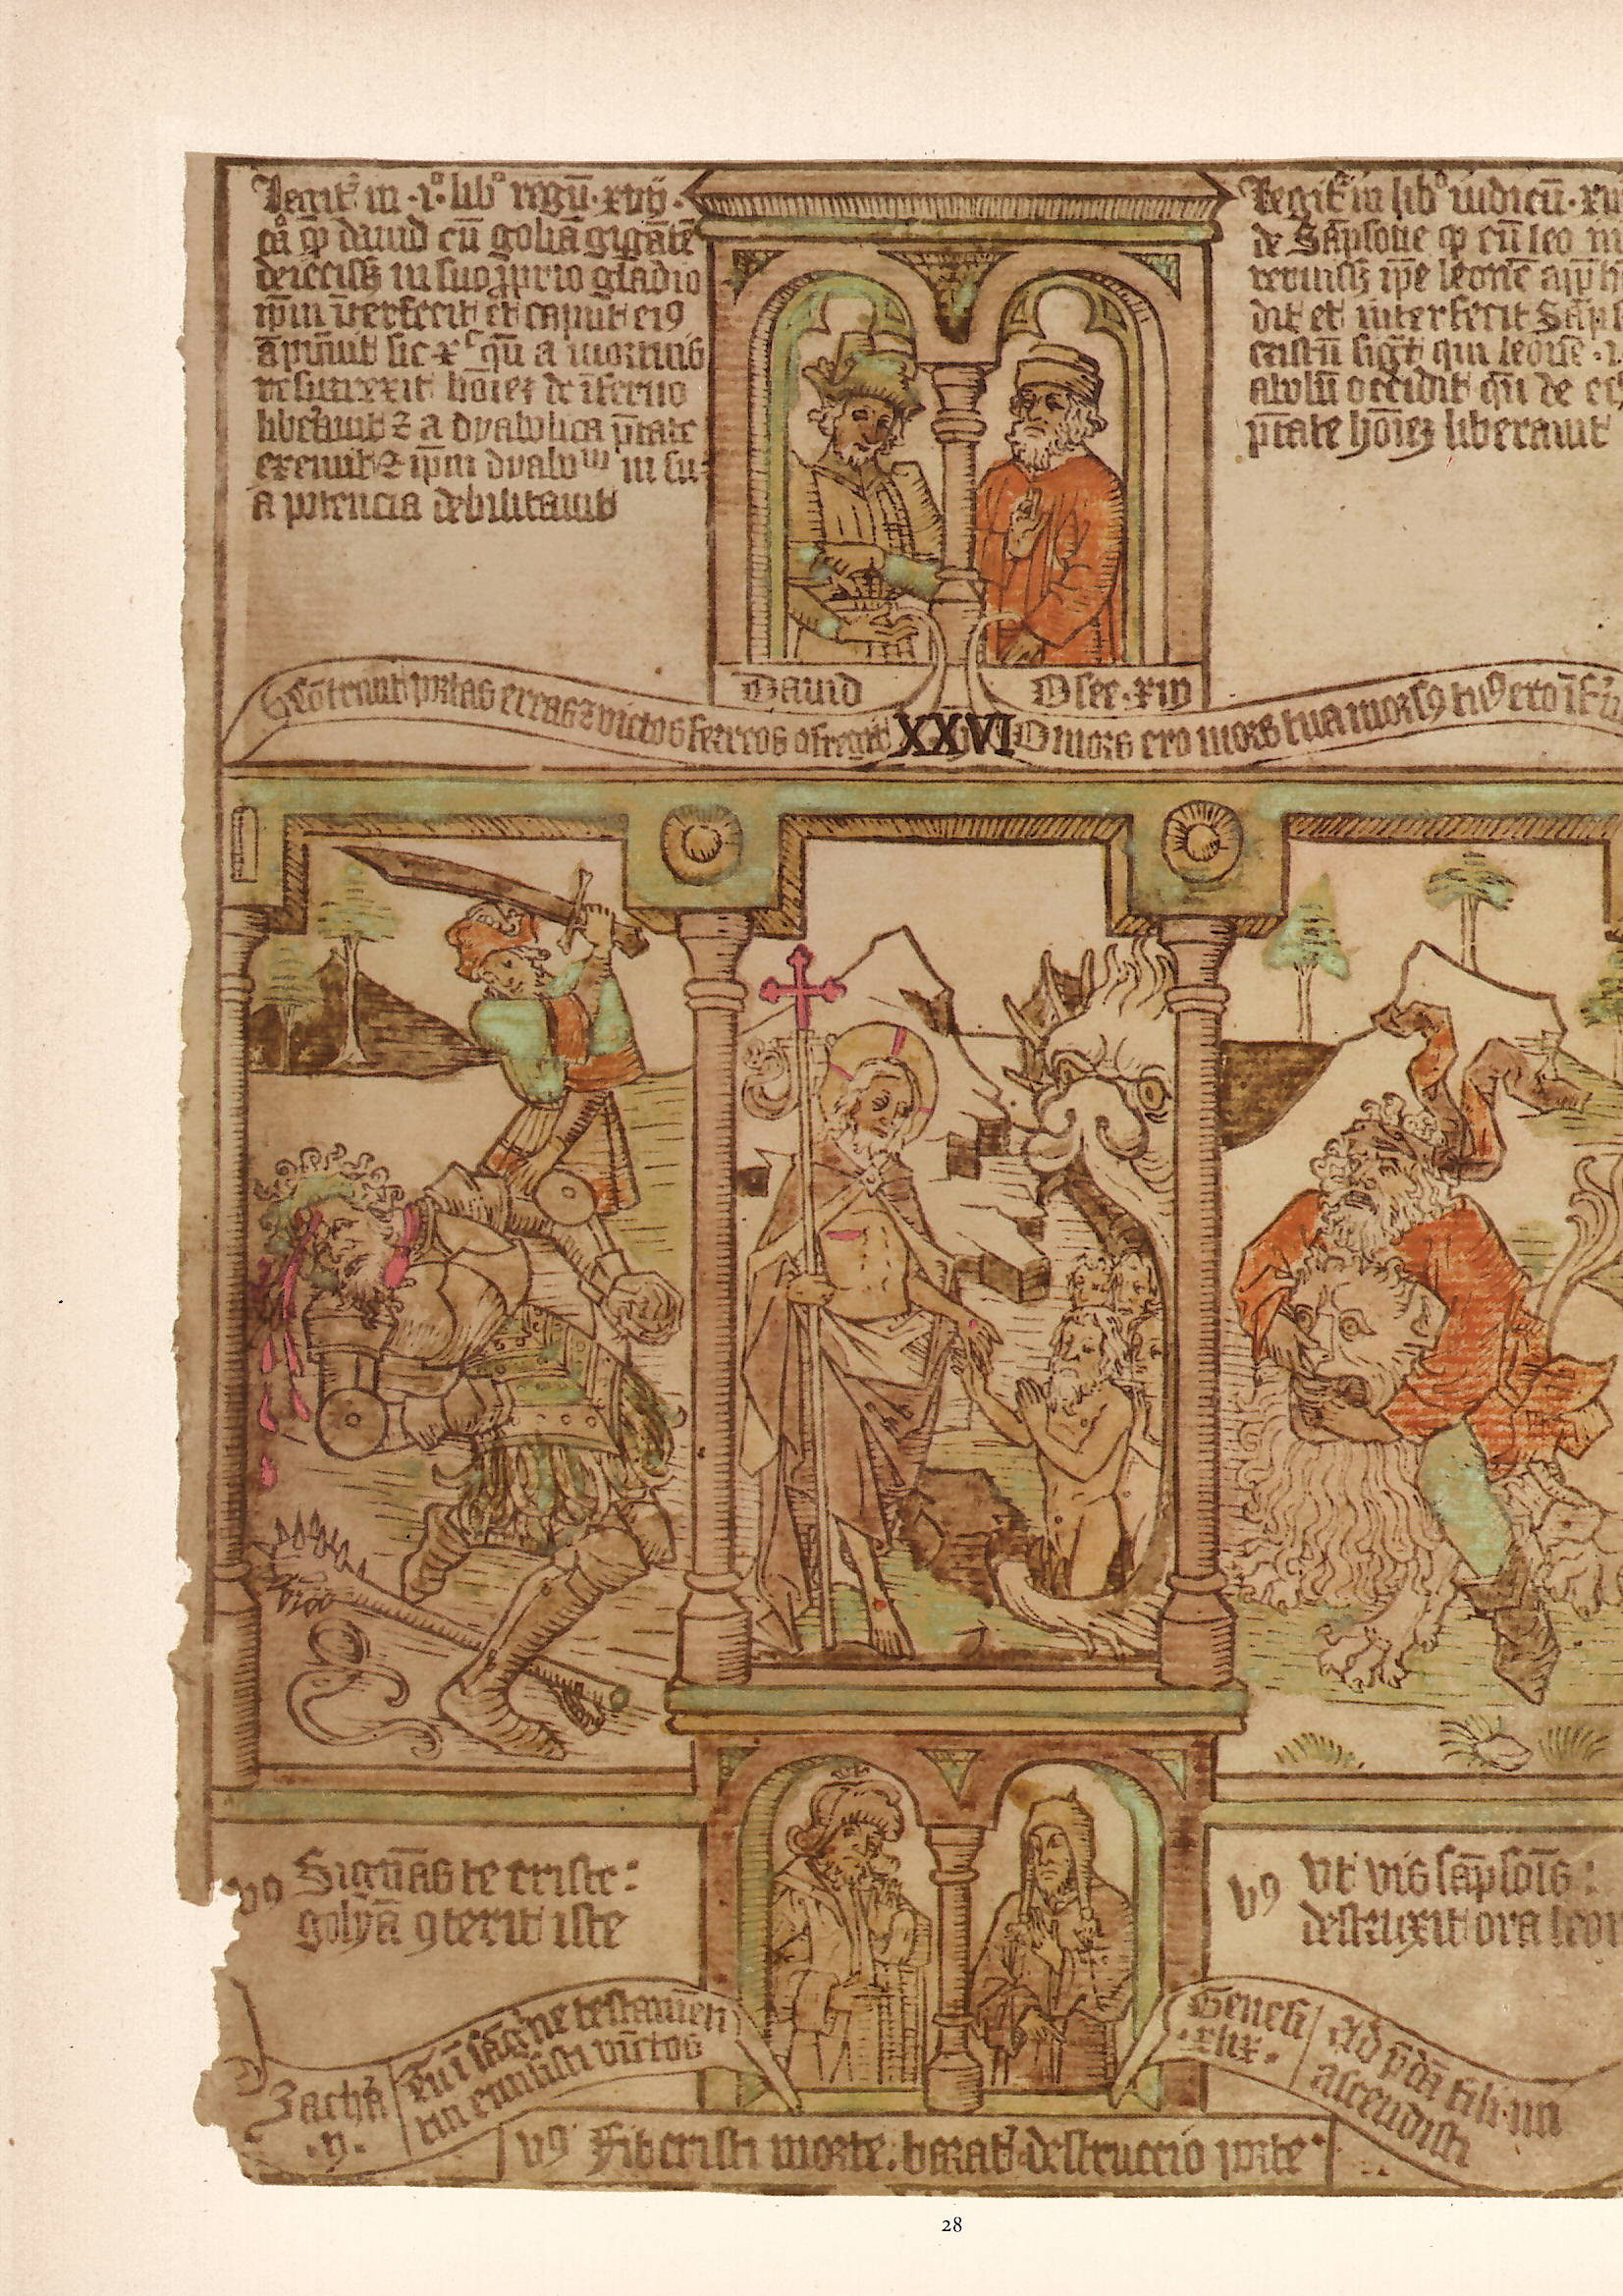 Legit᷑ in ·1°· lib° regū·xvij·
ca° qꝫ dauid cū goliā gigātē
deiecissꝫ in suo ꝓprio gladio
ip̄m īterfecit et caput eiꝰ
āputauit sic xᶜ qn̄ a mortuis
resurrexit hoīeꝫ de īferno
liberauit ⁊ a dyabolica p̄tate
exemit ⁊ ip̄m dyaboᵘᵐ in su-
a potencia debilitauit
Legit᷑ in lib° iudicū·xii
de Sāpsone qꝫ cū leo
ip̄e leonē app̄
dit et interfecit Sāp
cristū sigt᷑ qui leonē
abolū occidit qn̄ de
p̄tate hoīeꝫ liberauit
Dauid
Osee·xiij
Cōtrauit portas ereas ⁊ victos ferreos ꝯfregit
XXVI
O mors ero mors tua morsꝰ tuꝰ ero īf
vꝰ Signās te criste:
golyā ꝯterit iste
vꝰ vt vis sāpsoīs:
destruxit ora leo
Zacha
·ix·
Tu ī sāg'ne testamēti
tui emisisti vīctos
Genesi
·xlix·
Ad p̄dā fili mi
ascendisti
vꝰ Fit cristi morte: barat᷑ destruccio porte
28